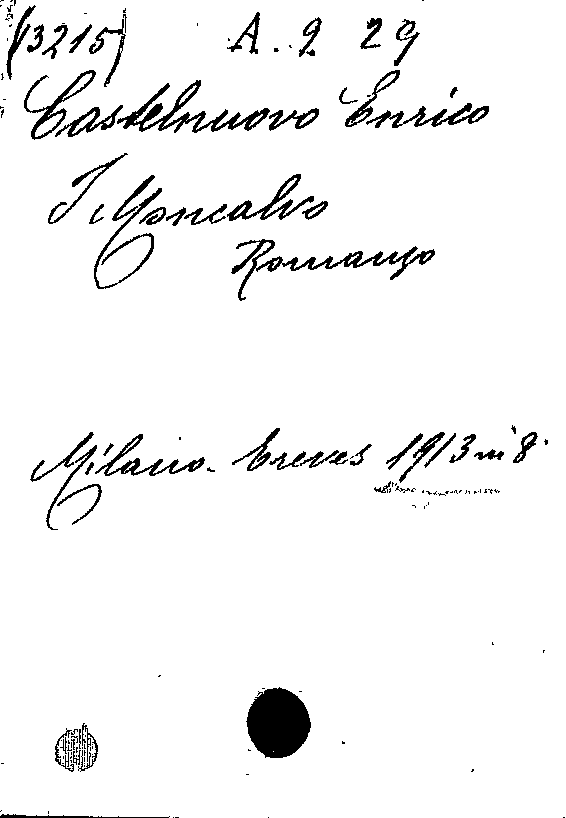 (13215) A. 2 29
Castelnuovo Enrico
I Moncalvo
Romanzo
Milano - Treves 1913 in 8°